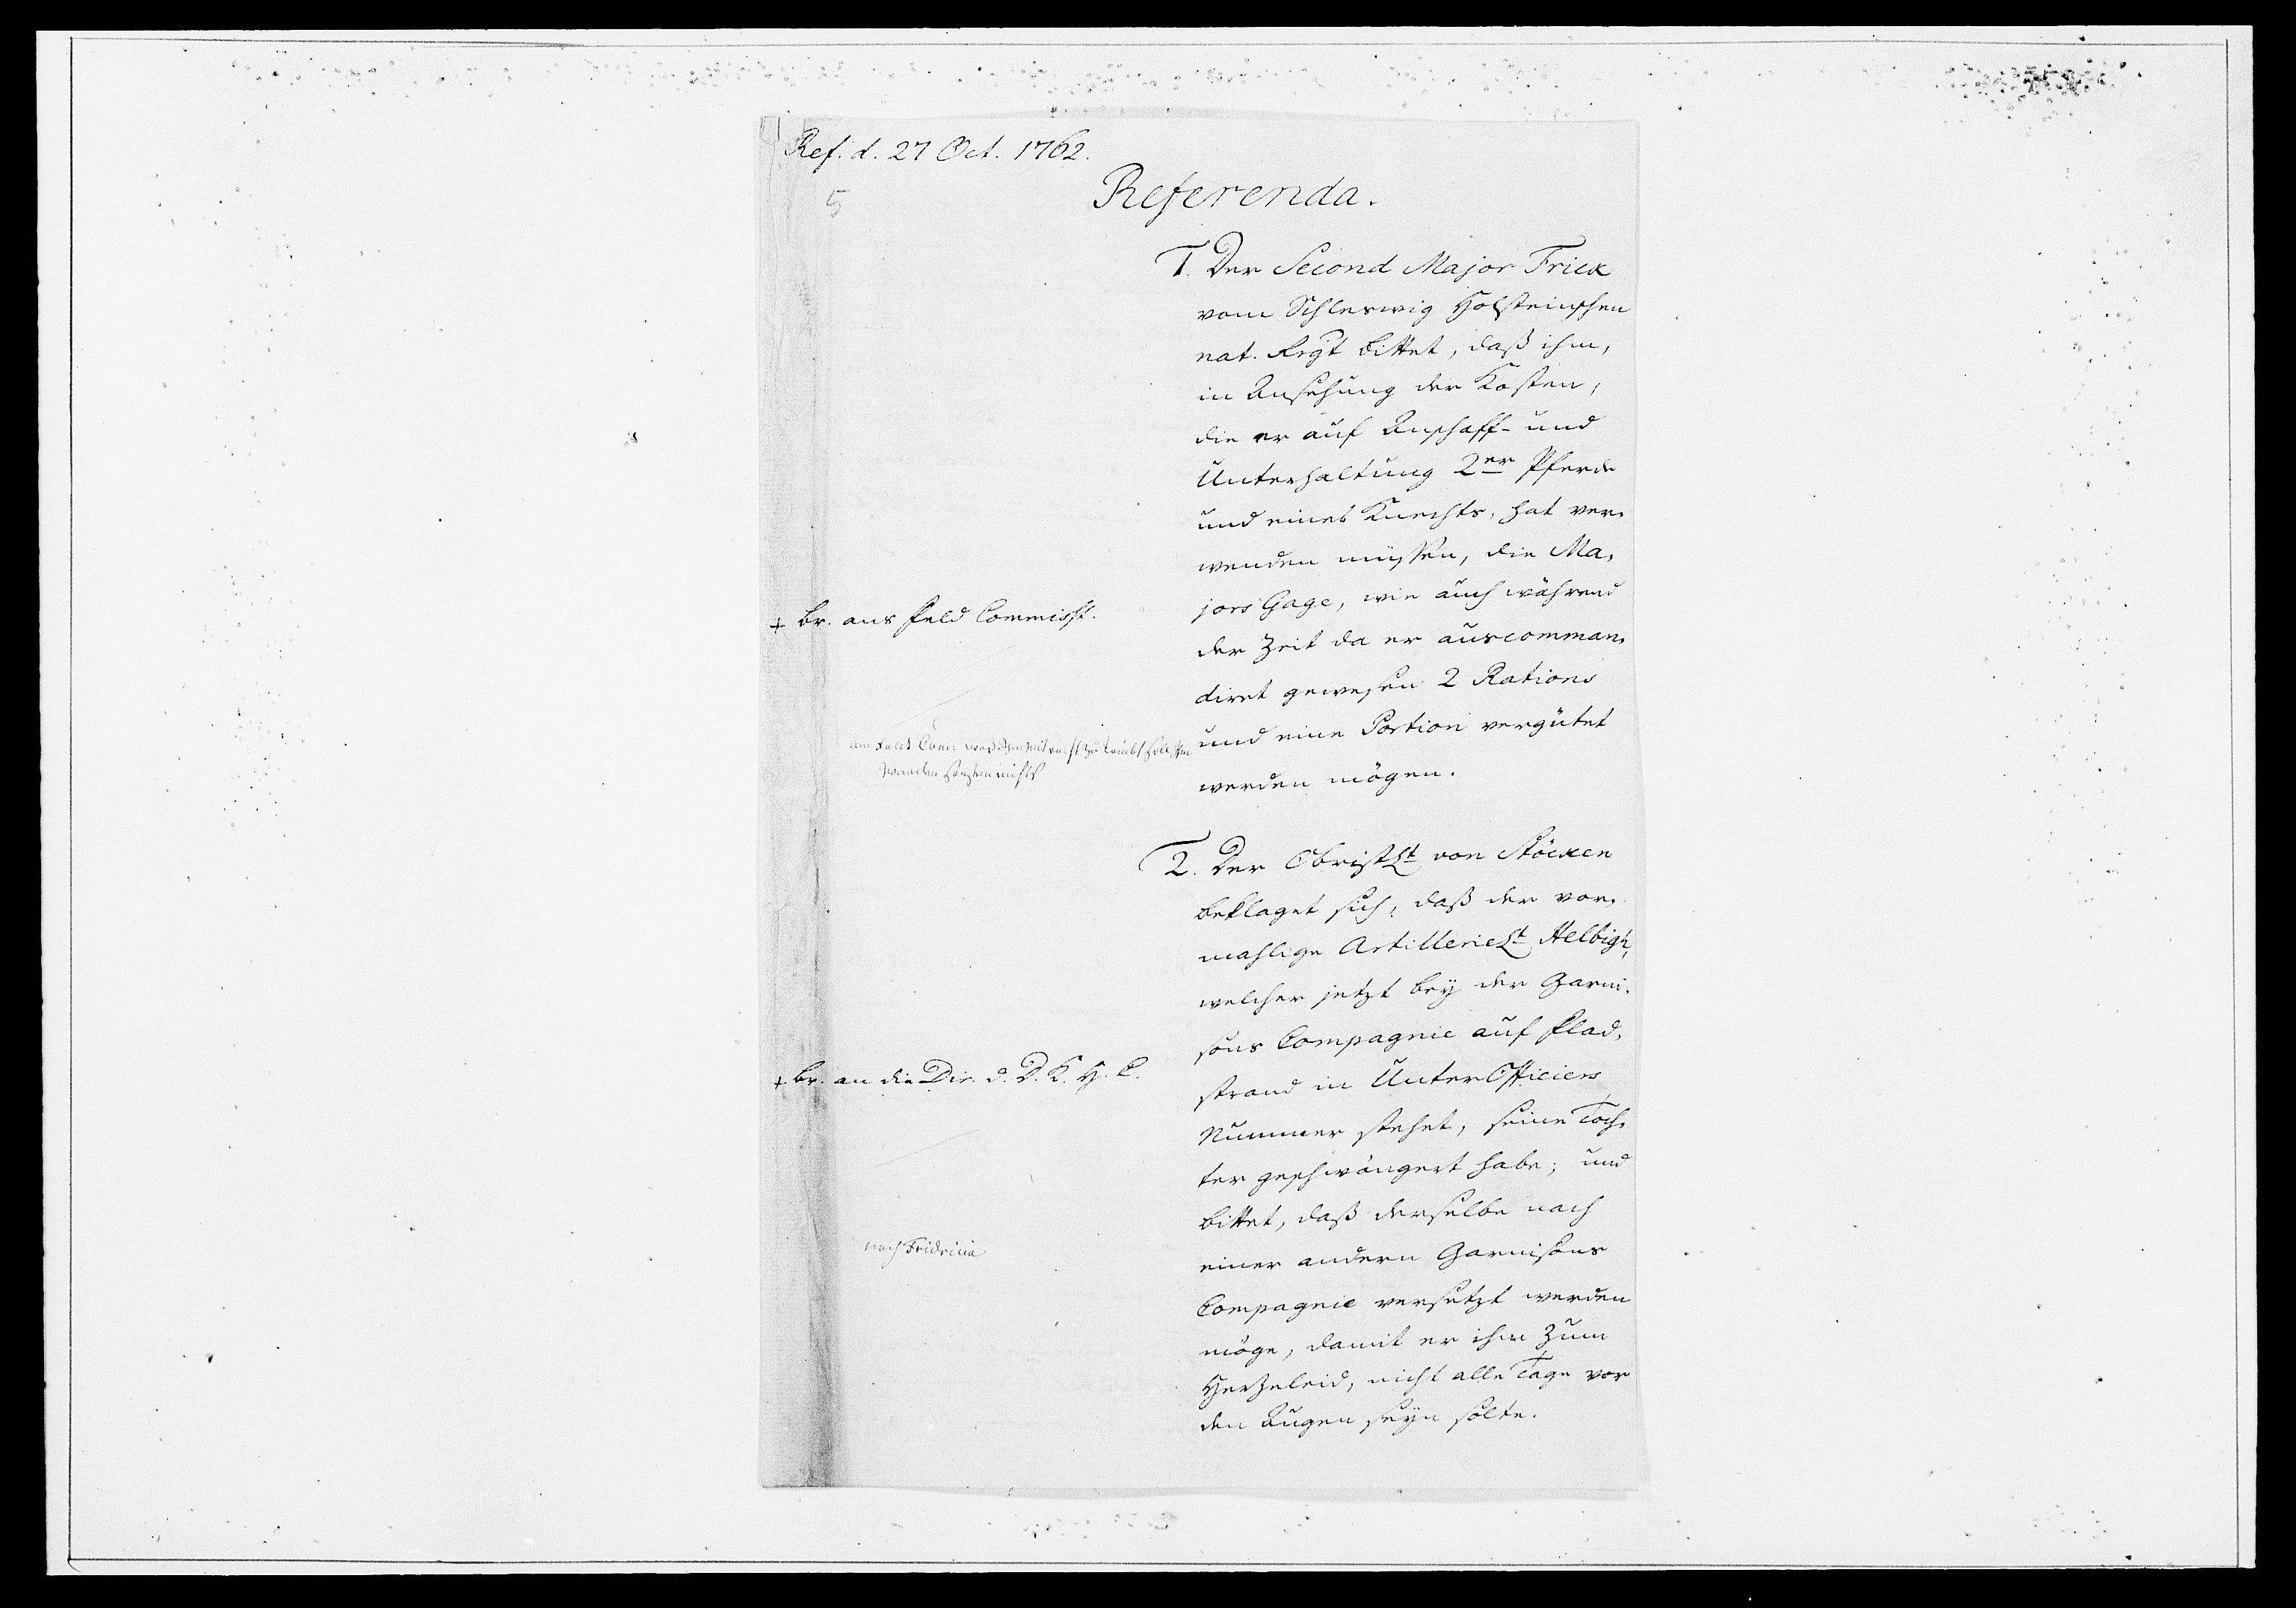 Ref. d. 27 Oct. 1762.
5
Referenda.
1. Der Second Major Frick
vom Schleswig Holsteinschen
nat. Regt bittet, daß ihm,
in Ansehung der Kosten,
die er auf Anschaff- und
Unterhaltung 2er Pferde
und eines Knechts, hat ver-
wenden müssen, die Ma-
jors Gage, wie auch während
der Zeit da er auscomman-
diret gewesen 2 Rations
und eine Portion vergütet
werden mögen.
+ Br. ans Feld Commisst.
am Feld Com:
2. Der ObristLt von Stöcken
beklaget sich, daß der vor-
mahlige ArtillerieLt Helbigk,
welcher jetzt bey der Garni-
sons Compagnie auf Flad-
strand in UnterOfficiers
Nummer stehet, seine Toch-
ter geschwängert habe; und
bittet, daß derselbe nach
einer andern Garnisons
Compagnie versetzt werden
möge, damit er ihm zum
Herzeleid, nicht alle Tage vor
den Augen seyn solte.
+ Br. an die Dir. d. D. K. H. C.
nach Fridricia